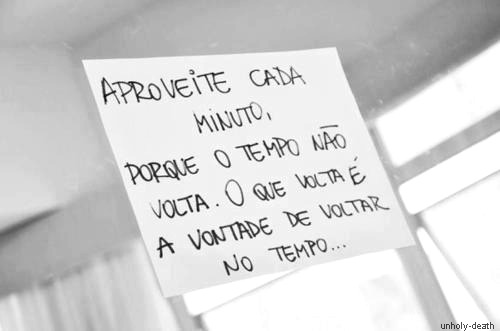 APROVEITE CADA
MINUTO,
PORQUE O TEMPO NÃO
VOLTA. O QUE VOLTA É
A VONTADE DE VOLTAR
NO TEMPO...
unholy-death